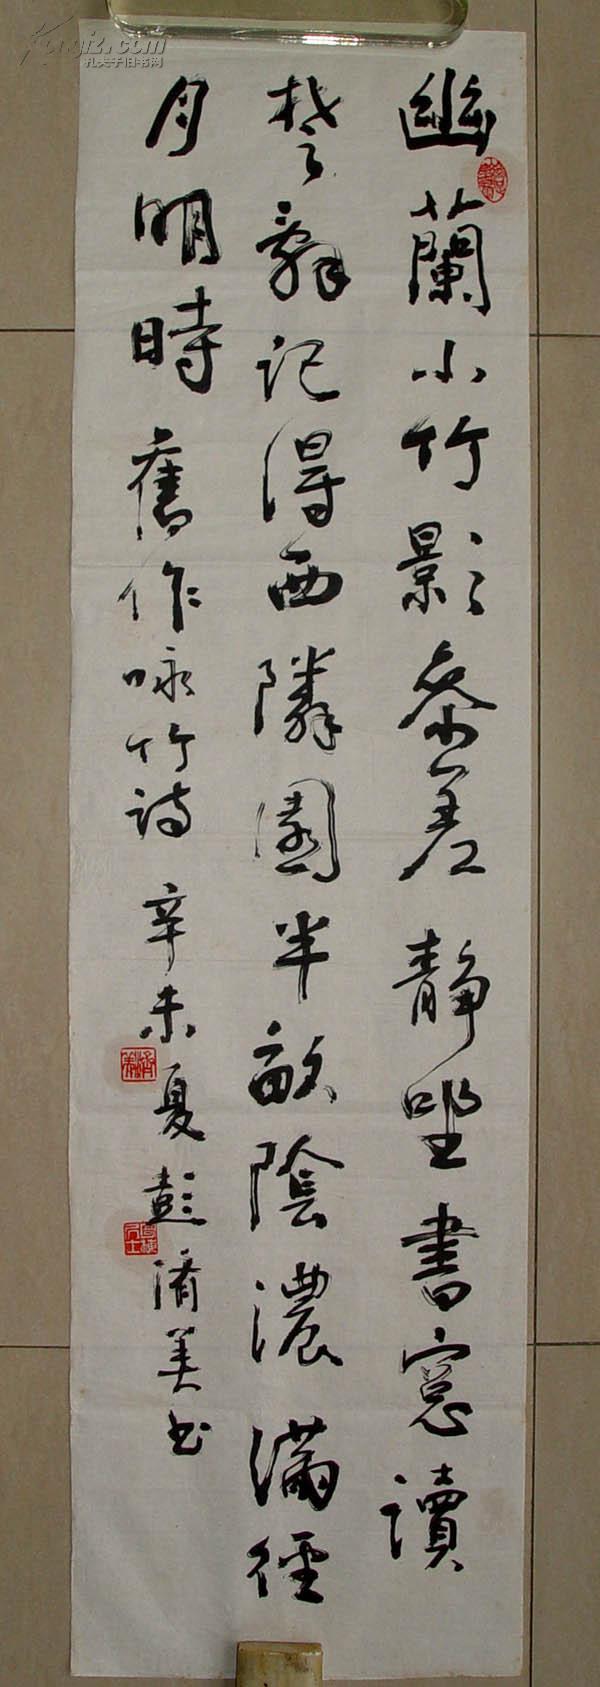 幽蘭小竹影參差靜坐書窓讀
楚辭記得西隣園半畝陰濃滿徑
月明時 舊作咏竹詩 辛未夏彭濟美书
kongfz.com
孔夫子旧书网